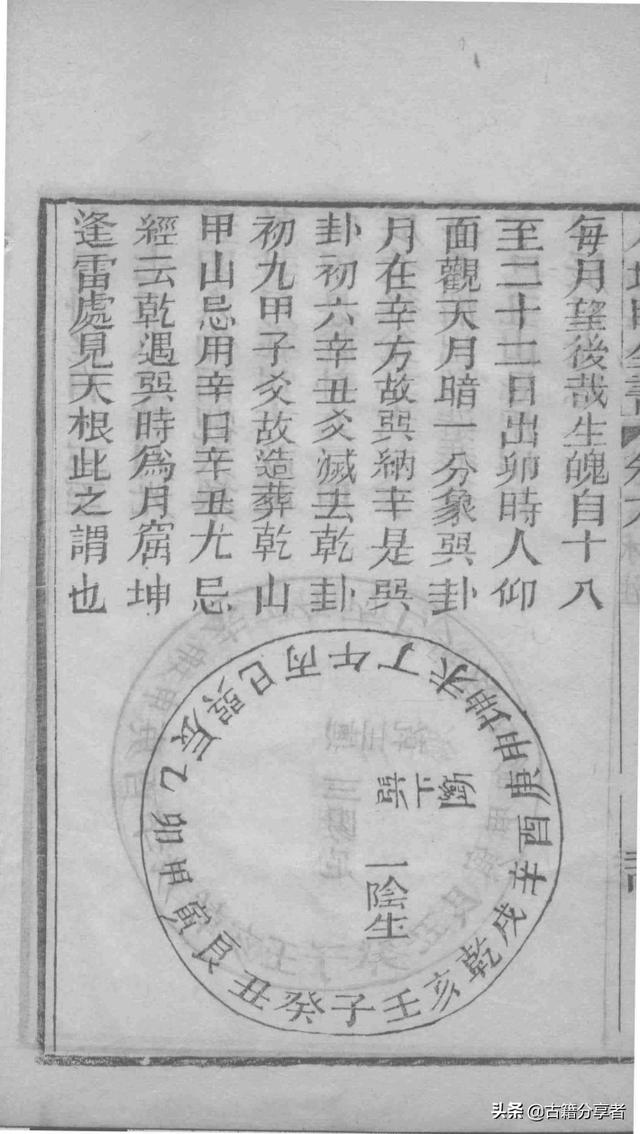 每月望後哉生魄自十八
至二十二日出卯時人仰
面觀天月暗一分象巽卦
月在辛方故巽納辛是巽
卦初六辛丑爻滅去乾卦
初九甲子爻故造葬乾山
甲山忌用辛日辛丑尤忌
經云乾遇巽時為月窟坤
逢雷處見天根此之謂也
子癸丑艮寅甲卯乙辰巽巳丙午丁未坤申庚酉辛戌乾亥壬
巽下斷
一陰生
头条@古籍分享者